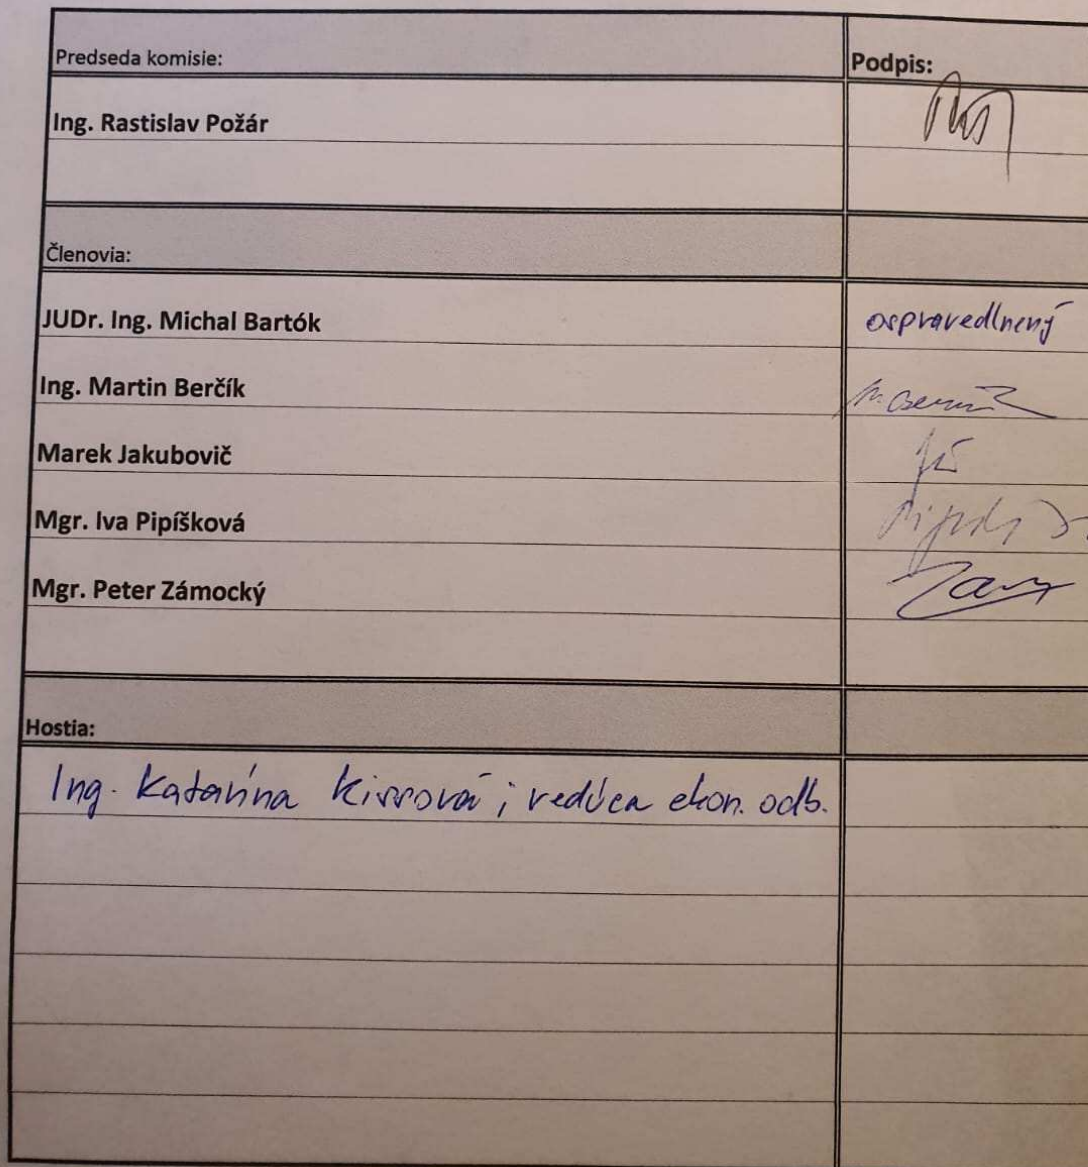 Predseda komisie: Podpis:
Ing. Rastislav Požár
Členovia:
JUDr. Ing. Michal Bartók ospravedlnený
Ing. Martin Berčík
Marek Jakubovič
Mgr. Iva Pipíšková
Mgr. Peter Zámocký
Hostia:
Ing. Katarína Kissová; vedúca ekon. odb.